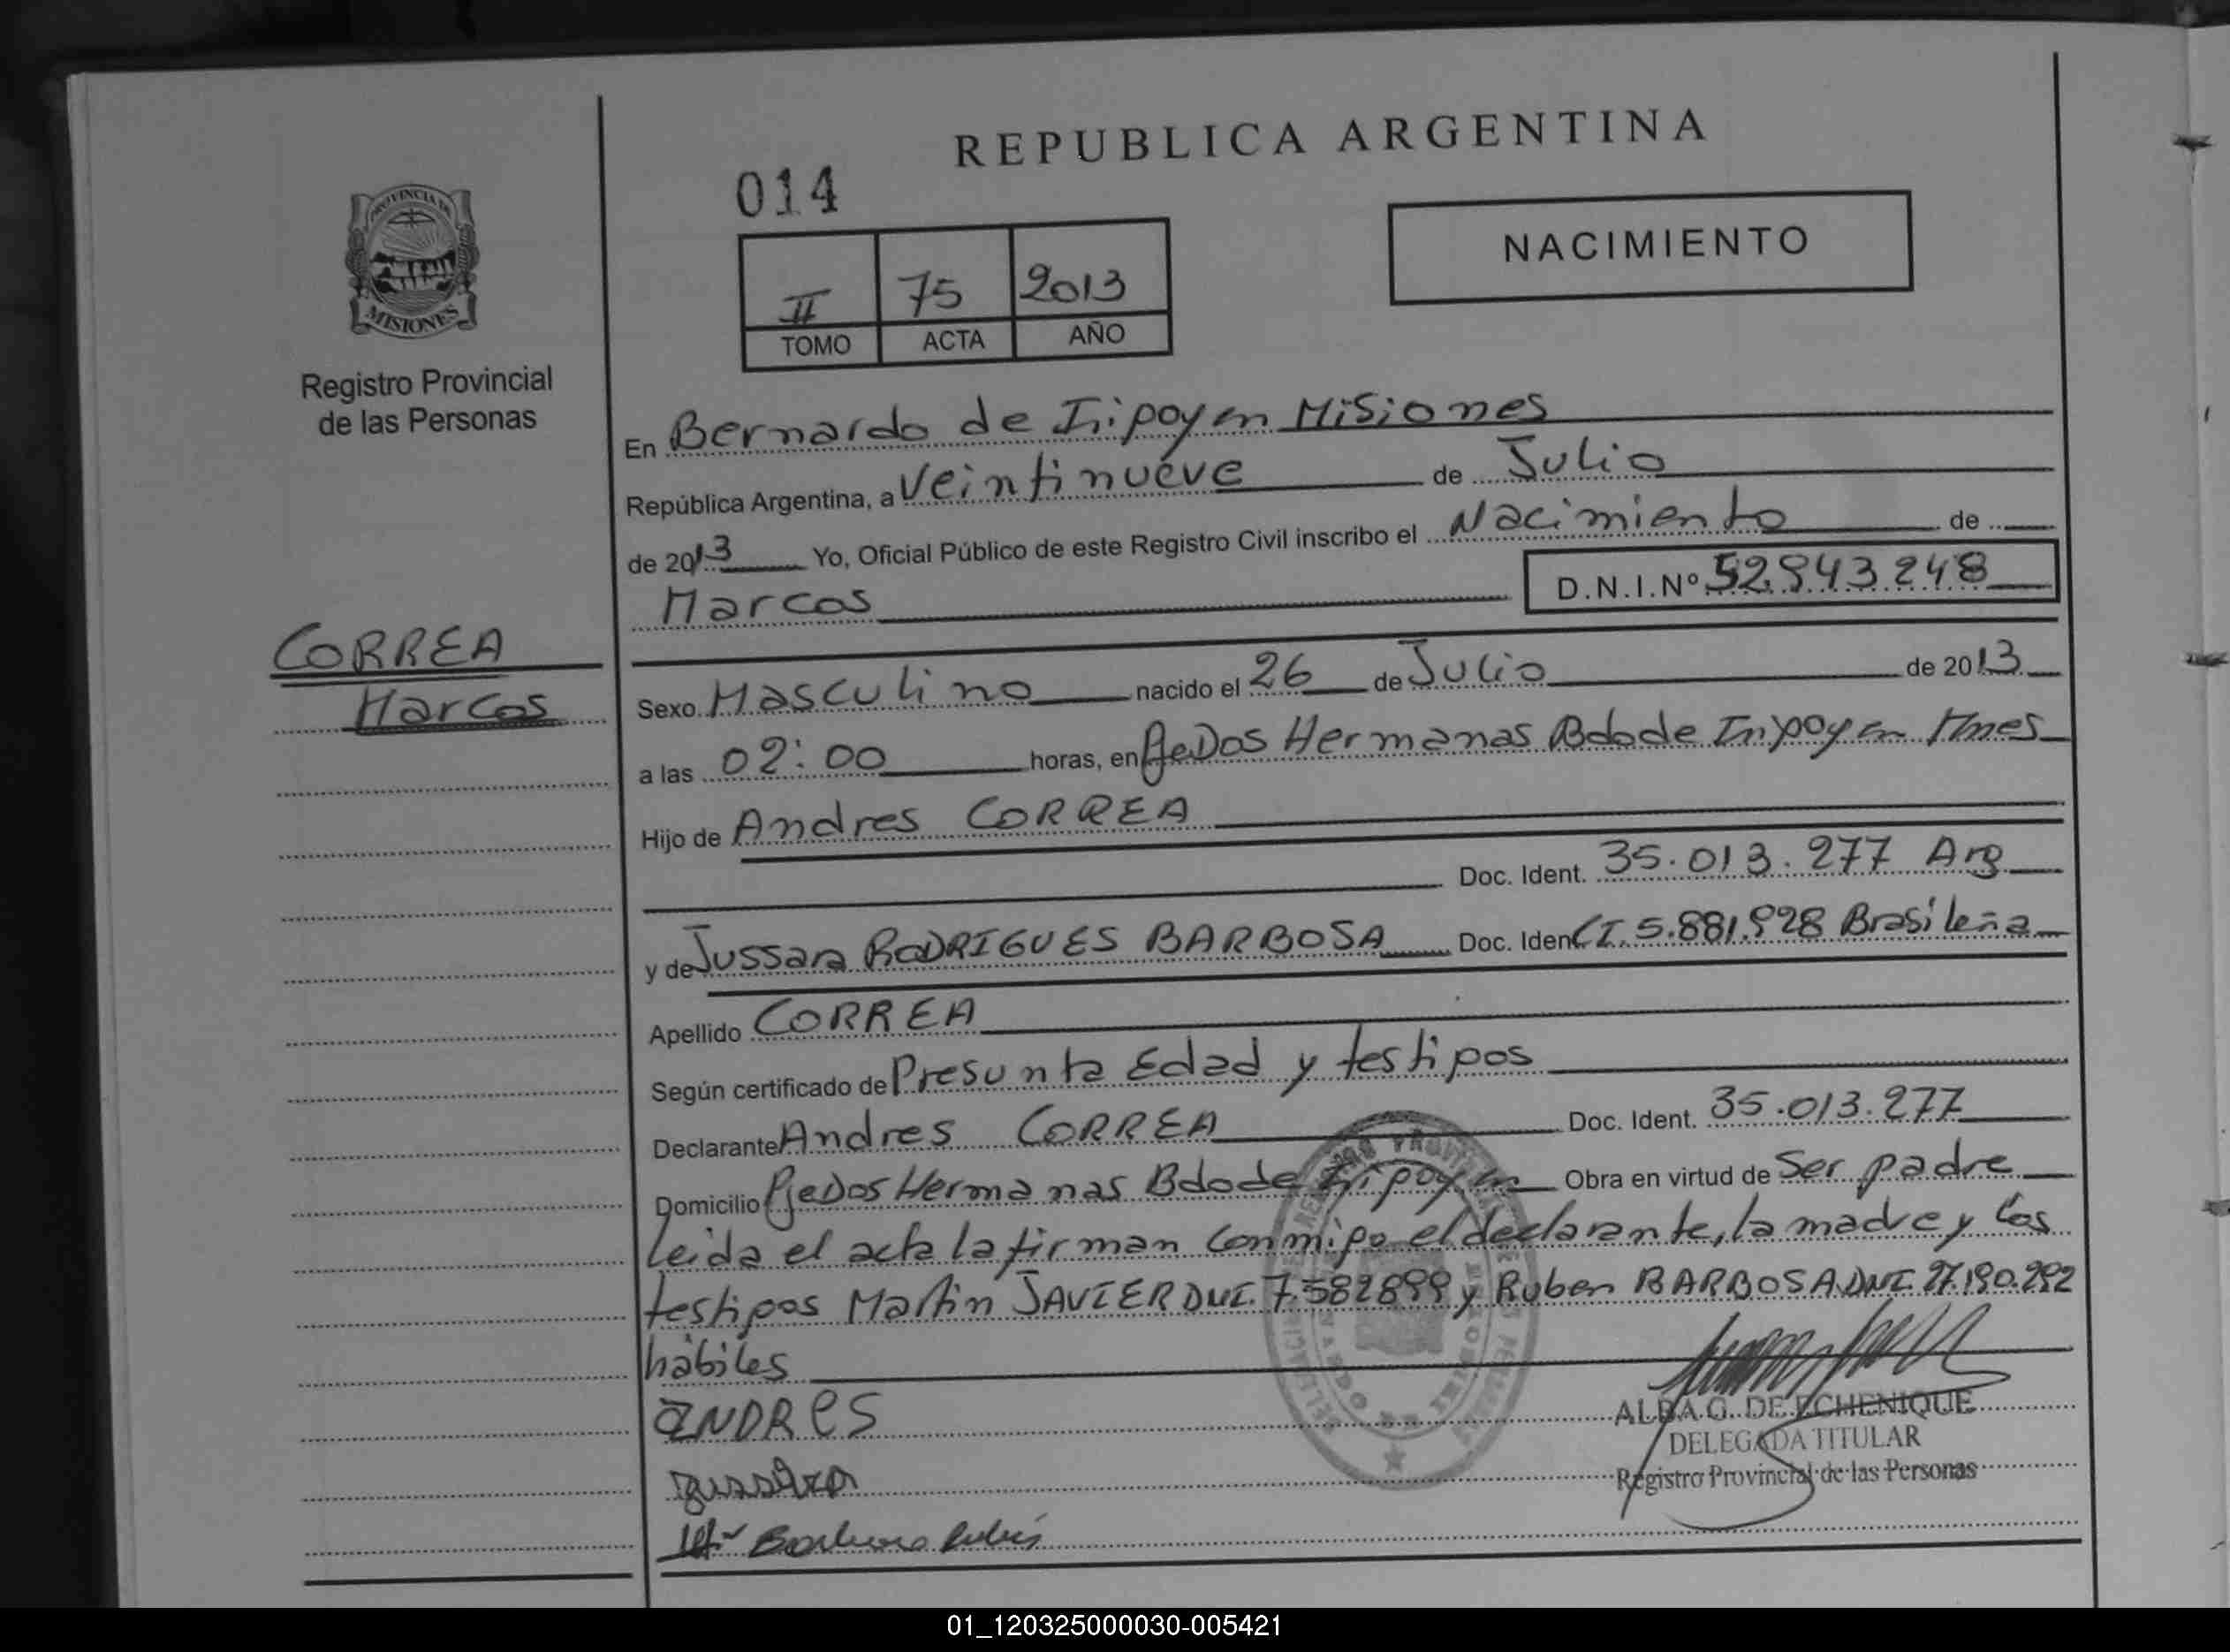 REPUBLICA ARGENTINA
014
PROVINCIA DE
MISIONES
Registro Provincial
de las Personas
II 75 2013
TOMO ACTA AÑO
NACIMIENTO
En Bernardo de Irigoyen Misiones
República Argentina, a Veintinueve de Julio
de 2013 Yo, Oficial Público de este Registro Civil inscribo el Nacimiento de
Marcos D.N.I.Nº 52.943.248
CORREA
Marcos
Sexo Masculino nacido el 26 de Julio de 2013
a las 02:00 horas, en Pje Dos Hermanas Bdo de Irigoyen Mnes
Hijo de Andres CORREA
Doc. Ident. 35.013.277 Arg
y de Jussara RODRIGUES BARBOSA Doc. Iden CI. 5.881.928 Brasileña
Apellido CORREA
Según certificado de Presunta Edad y testigos
Declarante Andres CORREA Doc. Ident. 35.013.277
Domicilio Pje Dos Hermanas Bdo de Irigoyen Obra en virtud de Ser padre
leida el acta la firman conmigo el declarante, la madre y los
testigos Martin JAVIER DNI. 7.582899 y Ruben BARBOSA DNI. 27.190.292
hábiles
ANDRES
ALBA G. DE ECHENIQUE
DELEGADA TITULAR
Registro Provincial de las Personas
01_120325000030-005421